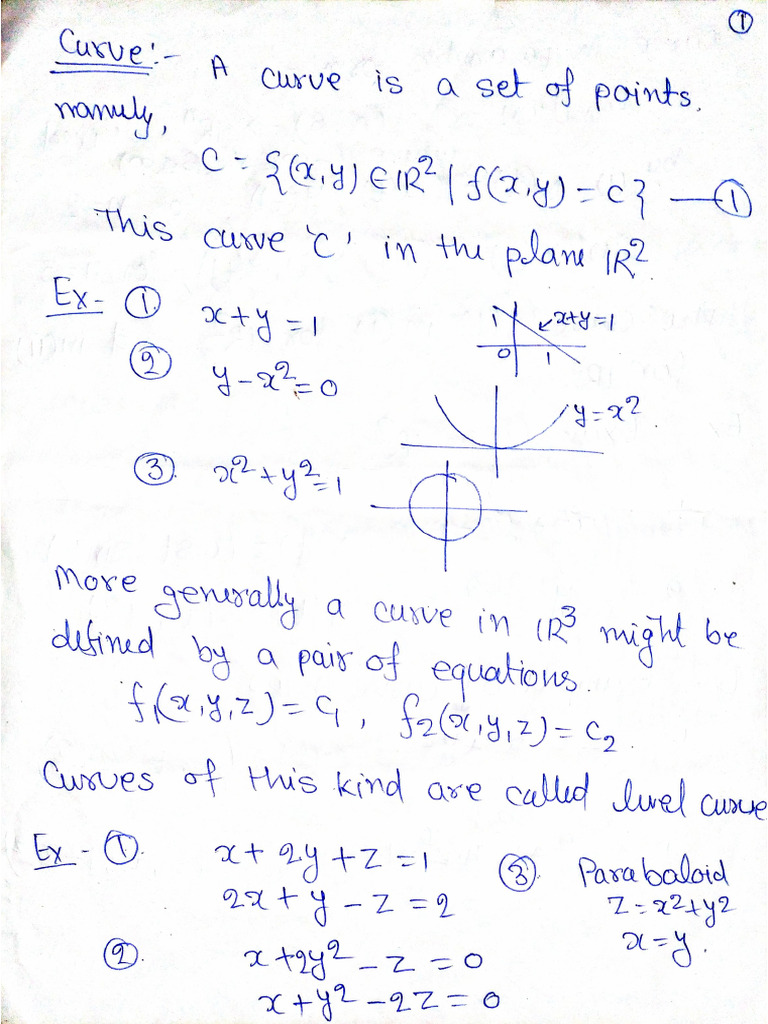 ①
Curve:- A curve is a set of points.
namely,
C = {(x,y) ∈ IR² | f(x,y) = c} —①
This curve 'C' in the plane IR².
Ex- ① x+y=1
1 x+y=1
0 1
② y-x²=0
y=x²
③ x²+y²=1
More generally a curve in IR³ might be
defined by a pair of equations.
f₁(x,y,z)=c₁, f₂(x,y,z)=c₂.
Curves of this kind are called level curve
Ex- ① x+2y+z=1
2x+y-z=2
② x+2y²-z=0
x+y²-2z=0
③ Parabaloid
z=x²+y²
x=y.